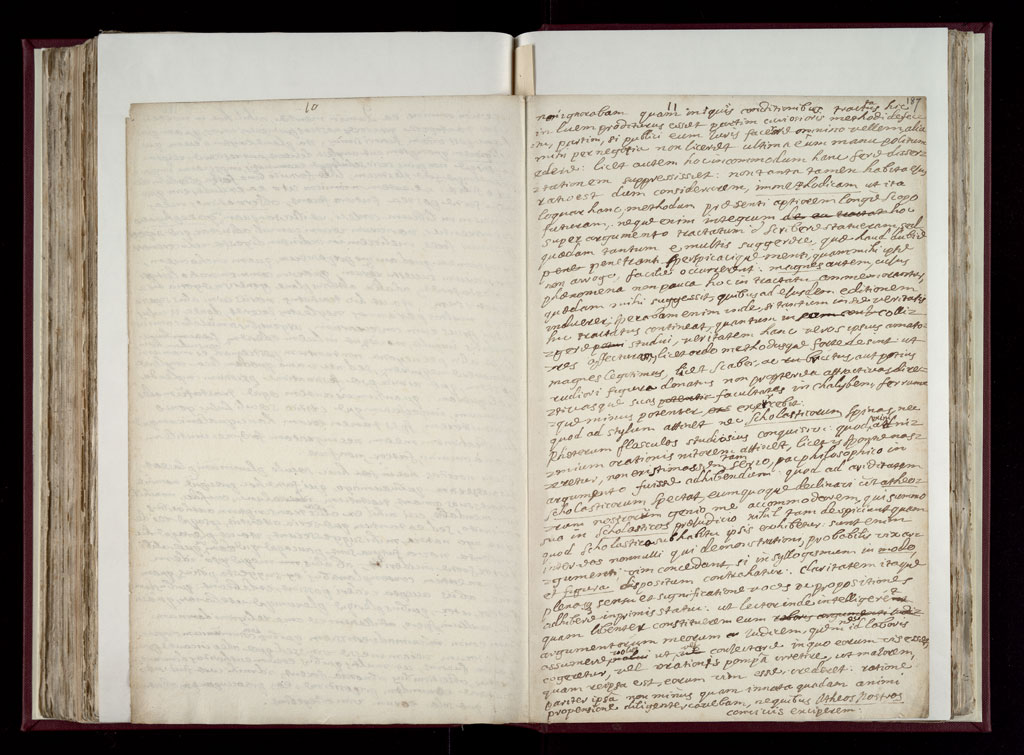 10
11
187
non ignorabam quam iniquis conditionibus tractatus hic
in lucem proditurus esset partim curiosioris methodi defec-
-tu, partim, si publici eum iuris facere omnino vellem, alia
mihi per negotia non liceret ultima eum manu politum
edere: licet autem hoc incommodum hanc fere disser-
-tationem suppressisset: non tanta tamen habita ejus
ratio est dum considerarem, immethodicam ut ita
loquar hanc, methodum præsenti aptiorem longe scopo
futuram, neque enim integrum hoc
super argumento tractatum scribere statueram, sed
quædam tantum e multis suggerere, quæ haud dubie
penetrant perspicacique menti, quam mihi ipse
non arrogo, facile occurrerent: magnes autem, cujus
phænomena non pauca hoc in tractatu commemorantur,
quædam mihi suggessit, quibus ad ejusdem editionem
inducerer; sperabam enim inde, si tantum in se veritatis
hic tractatus contineat, quantum in colli-
-gere studui, veritatem hanc veros ipsius amato-
-res affecturam, licet ordo methodusque forte desint: ut
magnes legitimus, licet scaber, ac aut potius
rudiori figura donatus non propterea attractivas direc-
-tivasque suas facultates in chalybem, ferrumve
-que minus potenter exercebit.
quod ad stylum attinet nec Scholasticorum spinas, nec
rhetorum flosculos studiosius conquisivi: quod
-mium orationis nitorem attinet, licet is sponte nas-
-ceretur, non existimassem tam serio, pac philosophico in
argumento fuisse adhibendum: quod ad ariditatem
Scholasticorum spectat, eumquoque declinavi cùm atheo-
-rum nostrorum genio me accommodarem, qui summo
suo in Scholasticos præjudicio nihil tam despiciunt quam
quod Scholastico sub habitu ipsis exhibetur: sunt enim
inter eos nonnulli qui demonstrationi, probabilis vix ar-
-gumenti vim concedant, si in syllogismum in modo,
et figura dispositum contrahatur. Claritatem itaque
plenas sensu et significatione voces ac propositiones
adhibere inprimis statui: ut lector inde intelligeret
quam libenter constituerem eum
argumentorum meorum judicem, quem id laboris
assumere ut coniectare in quo eorum vis esset
cogeretur, vel orationis pompa irretire, ut maiorem,
quam reipsa est, eorum vim esse crederet: ratione
pariter ipsa non minus quam innata quadam animi
propensione diligenter cavebam, nequibus Atheos Nostros
conviciis exciperem.